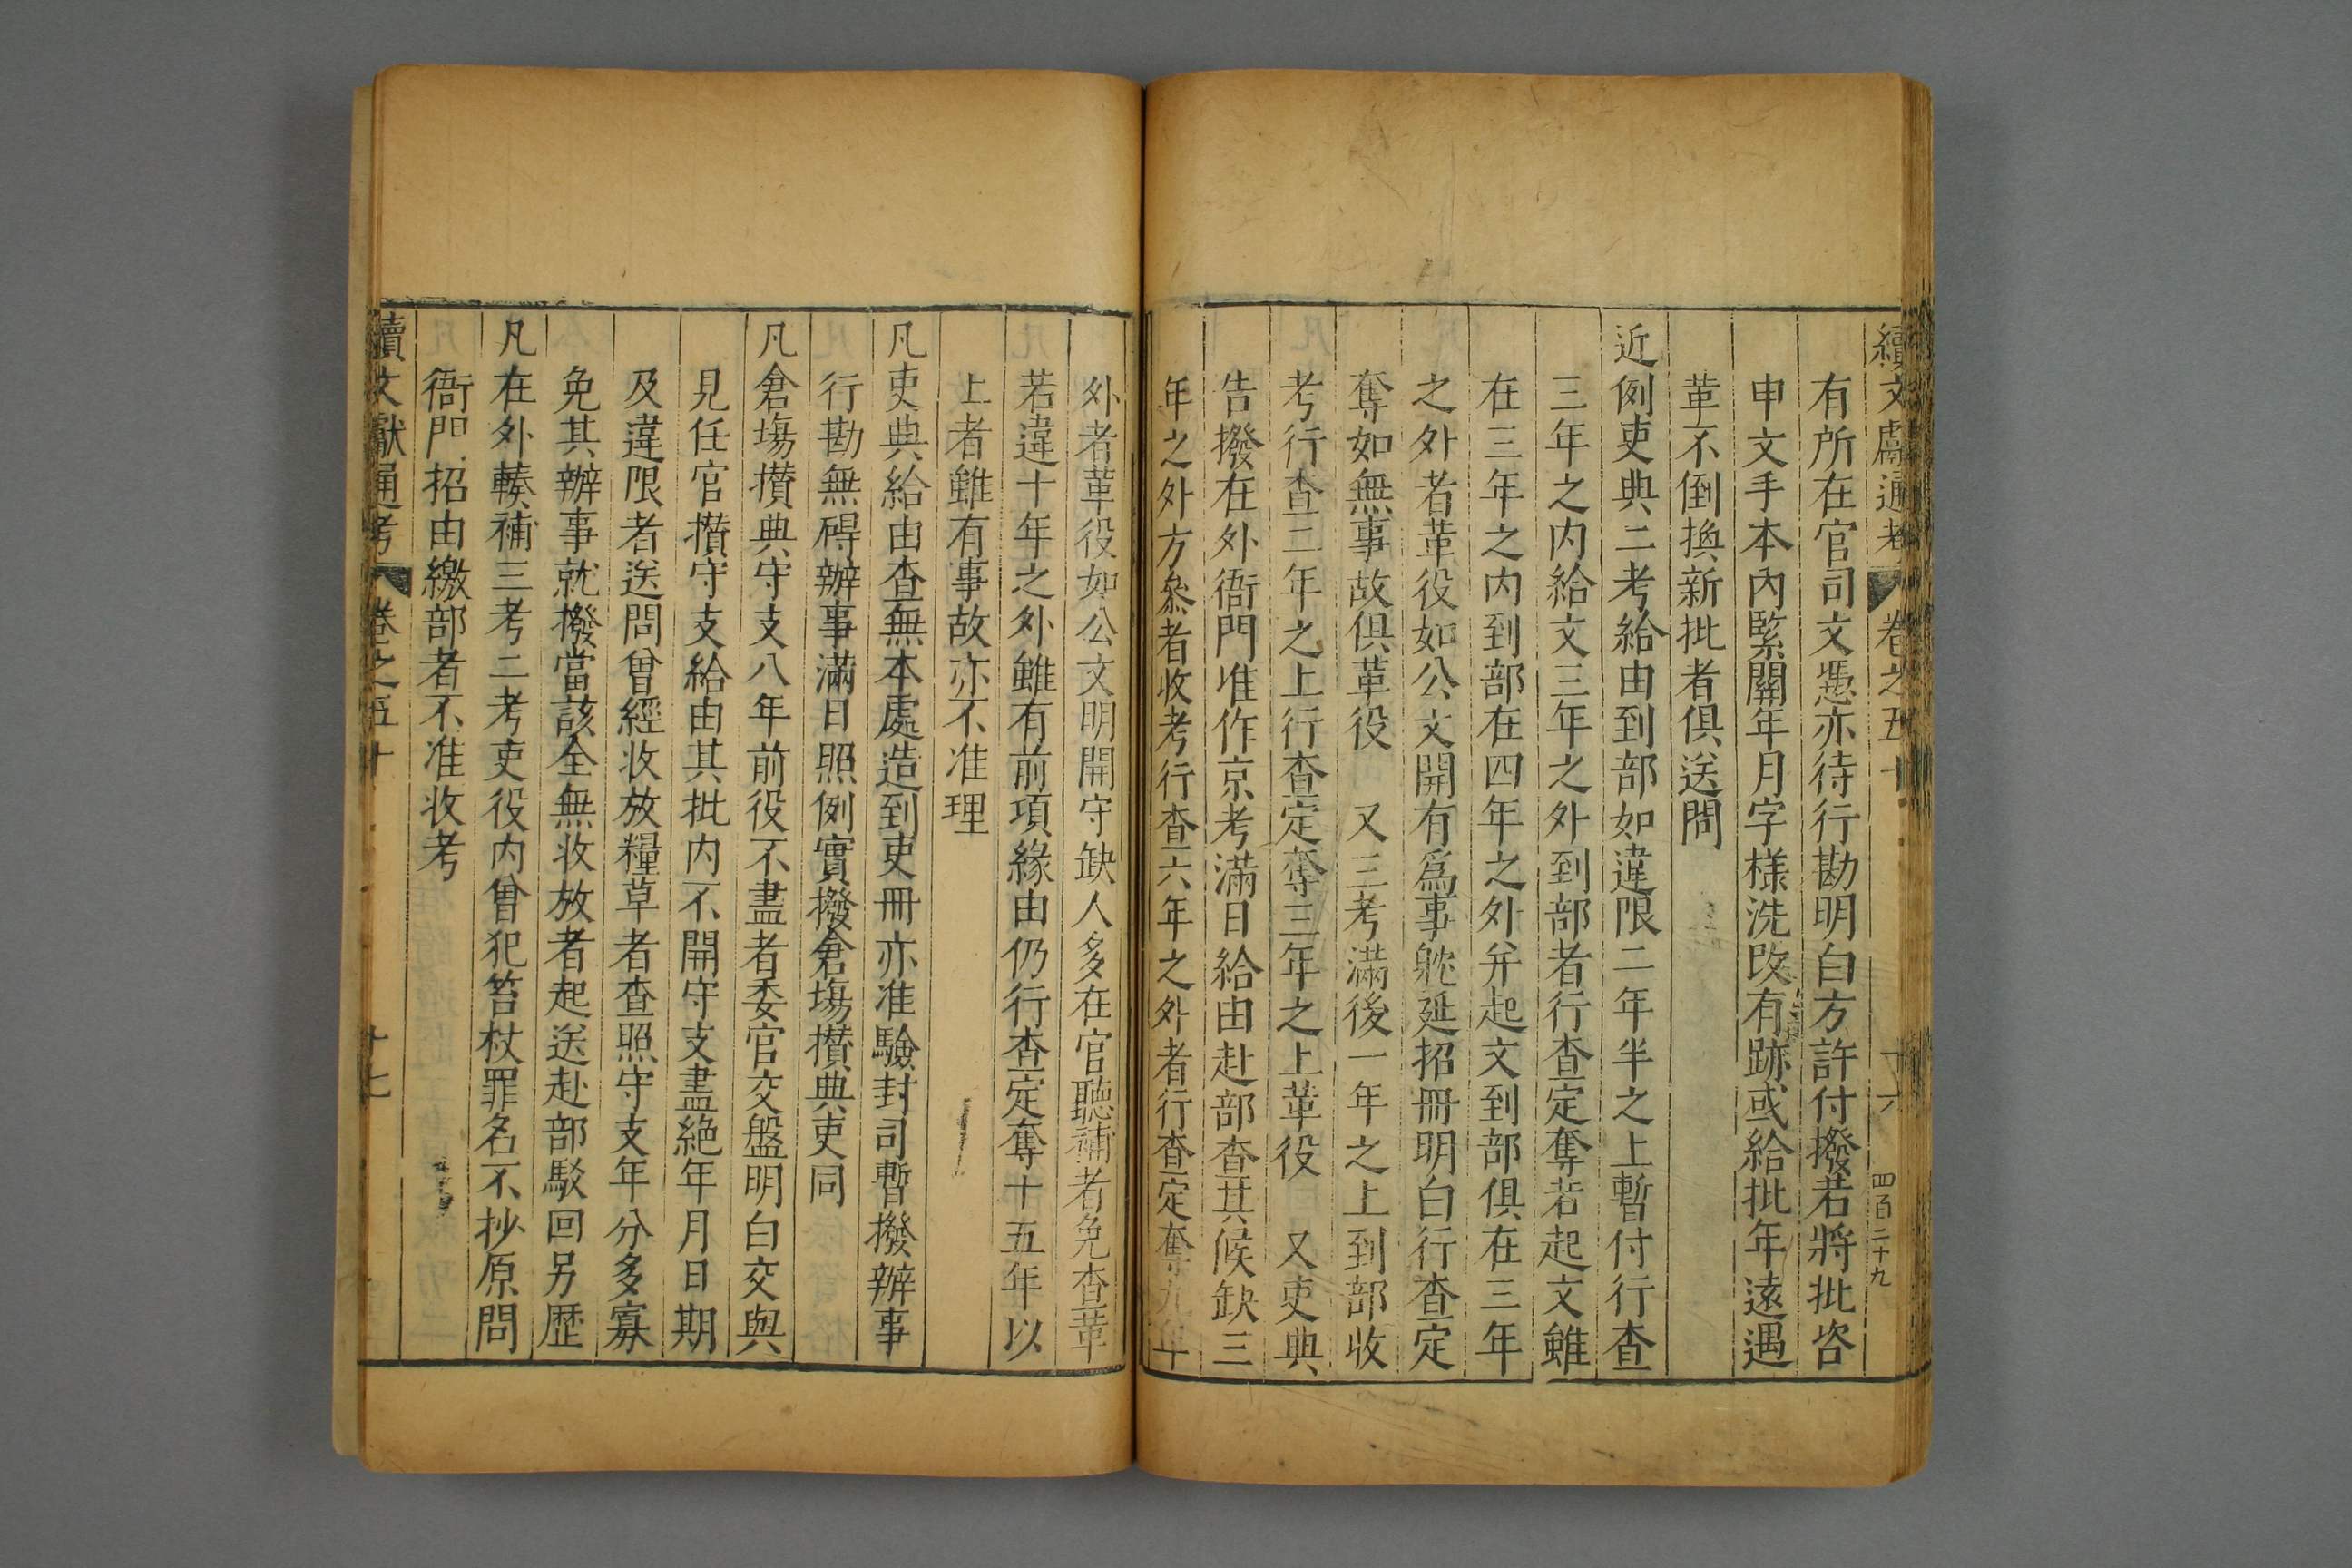 續文獻通考 卷之五十 十六 四百二十九
有所在官司文憑亦待行勘明白方許付撥若將批咨
申文手本內緊關年月字樣洗改有跡或給批年遠遇
革不倒換新批者俱送問
近例吏典二考給由到部如違限二年半之上暫付行查
三年之內給文三年之外到部者行查定奪若起文雖
在三年之內到部在四年之外并起文到部俱在三年
之外者革役如公文開有爲事躭延招冊明白行查定
奪如無事故俱革役 又三考滿後一年之上到部收
考行查二年之上行查定奪三年之上革役 又吏典
告撥在外衙門准作京考滿日給由赴部查其候缺三
年之外方叅者收考行查六年之外者行查定奪九年
外者革役如公文明開守缺人多在官聽補者免查革
若違十年之外雖有前項緣由仍行查定奪十五年以
上者雖有事故亦不准理
凡吏典給由查無本處造到吏冊亦准驗封司暫撥辦事
行勘無碍辦事滿日照例實撥倉塲攢典吏同
凡倉塲攢典守支八年前役不盡者委官交盤明白交與
見任官攢守支給由其批內不開守支盡絶年月日期
及違限者送問曾經收放糧草者查照守支年分多寡
免其辦事就撥當該全無收放者起送赴部駁回另歷
凡在外轃補三考二考吏役內曾犯笞杖罪名不抄原問
衙門招由繳部者不准收考
續文獻通考 卷之五十 十七